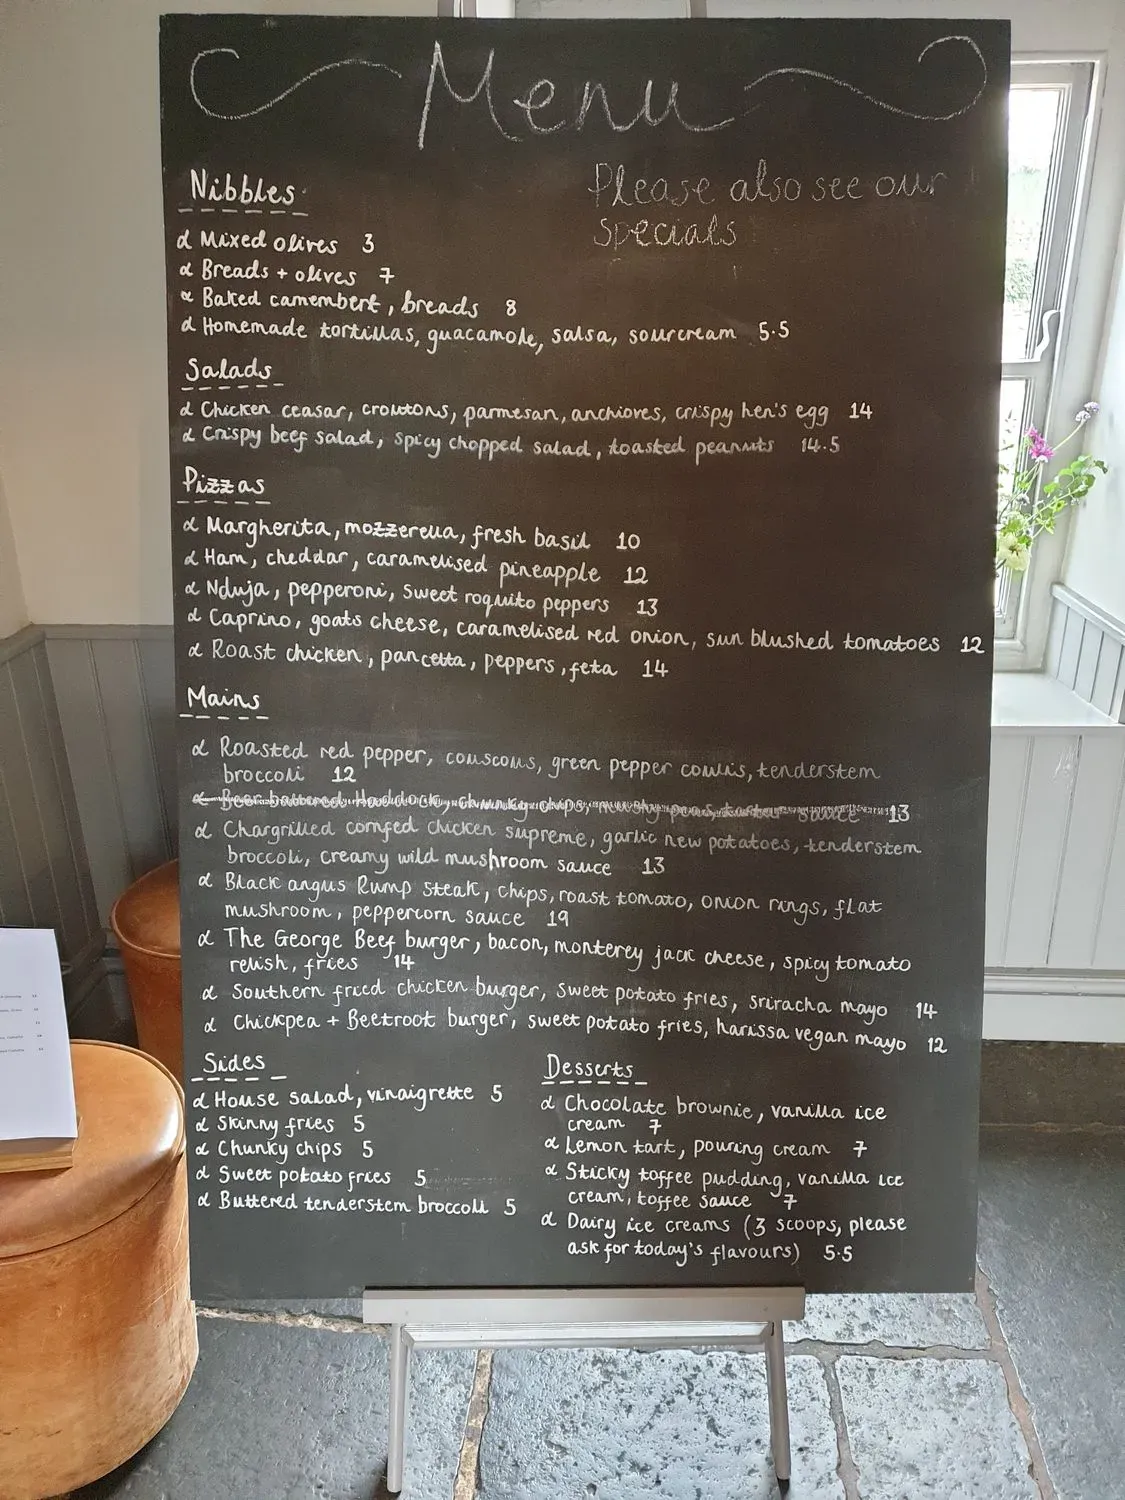 Menu
Please also see our
specials
Nibbles
Mixed olives 3
Breads + olives 7
Baked camembert, breads 8
Homemade tortillas, guacamole, salsa, sourcream 5.5
Salads
Chicken ceasar, croutons, parmesan, anchioves, crispy hen's egg 14
Crispy beef salad, spicy chopped salad, toasted peanuts 14.5
Pizzas
Margherita, mozzerella, fresh basil 10
Ham, cheddar, caramelised pineapple 12
Nduja, pepperoni, sweet roquito peppers 13
Caprino, goats cheese, caramelised red onion, sun blushed tomatoes 12
Roast chicken, pancetta, peppers, feta 14
Mains
Roasted red pepper, couscous, green pepper coulis, tenderstem
broccoli 12
Beer battered Haddock, chunky chips, mushy peas, tartar sauce 13
Chargrilled cornfed chicken supreme, garlic new potatoes, tenderstem
broccoli, creamy wild mushroom sauce 13
Black angus Rump steak, chips, roast tomato, onion rings, flat
mushroom, peppercorn sauce 19
The George Beef burger, bacon, monterey jack cheese, spicy tomato
relish, fries 14
Southern fried chicken burger, sweet potato fries, sriracha mayo 14
Chickpea + Beetroot burger, sweet potato fries, harissa vegan mayo 12
Sides
House salad, vinaigrette 5
Skinny fries 5
Chunky chips 5
Sweet potato fries 5
Buttered tenderstem broccoli 5
Desserts
Chocolate brownie, vanilla ice
cream 7
Lemon tart, pouring cream 7
Sticky toffee pudding, vanilla ice
cream, toffee sauce 7
Dairy ice creams (3 scoops, please
ask for today's flavours) 5.5